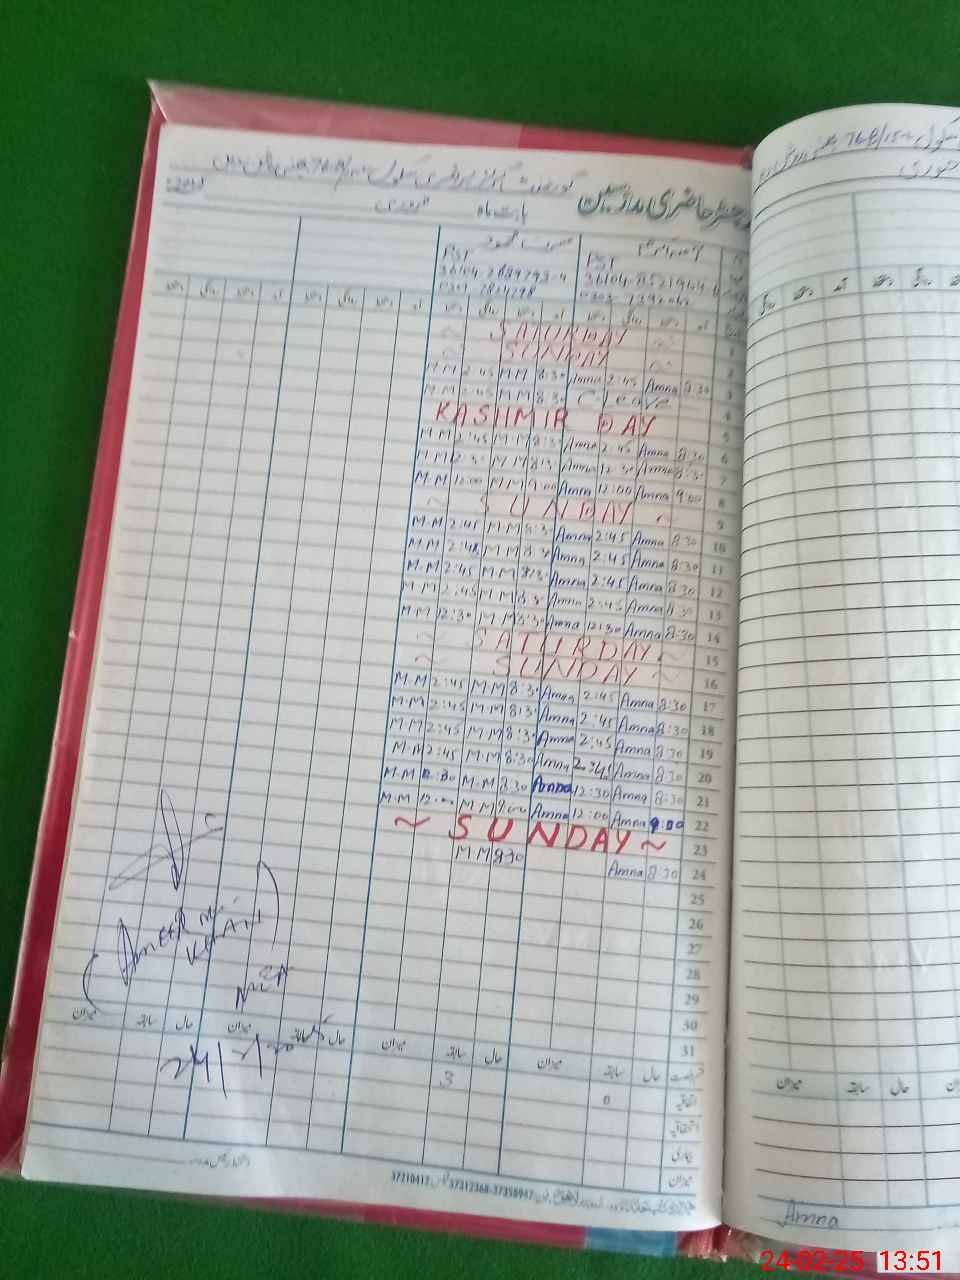 رجسٹر حاضری مدرسین
بابت ماہ فروری
PST PST
SATURDAY 1
SUNDAY 2
M.M 2:45 M.M 8:30 Amna 2:45 Amna 8:30 3
M.M 2:45 M.M 8:30 C-Leave 4
KASHMIR DAY 5
M.M 2:45 M.M 8:30 Amna 2:45 Amna 8:30 6
M.M 12:30 M.M 8:30 Amna 12:30 Amna 8:30 7
M.M 12:00 M.M 9:00 Amna 12:00 Amna 9:00 8
~ SUNDAY ~ 9
M.M 2:45 M.M 8:30 Amna 2:45 Amna 8:30 10
M.M 2:45 M.M 8:30 Amna 2:45 Amna 8:30 11
M.M 2:45 M.M 8:30 Amna 2:45 Amna 8:30 12
M.M 2:45 M.M 8:30 Amna 2:45 Amna 8:30 13
M.M 12:30 M.M 8:30 Amna 12:30 Amna 8:30 14
~ SATURDAY ~ 15
~ SUNDAY ~ 16
M.M 2:45 M.M 8:30 Amna 2:45 Amna 8:30 17
M.M 2:45 M.M 8:30 Amna 2:45 Amna 8:30 18
M.M 2:45 M.M 8:30 Amna 2:45 Amna 8:30 19
M.M 2:45 M.M 8:30 Amna 2:45 Amna 8:30 20
M.M 12:30 M.M 8:30 Amna 12:30 Amna 8:30 21
M.M 12:00 M.M 9:00 Amna 12:00 Amna 9:00 22
~ SUNDAY ~ 23
M.M 8:30 Amna 8:30 24
25
26
27
28
29
30
31
AMEER
KHAN
میزان سابقہ حال میزان سابقہ حال میزان سابقہ حال میزان سابقہ حال
3 0 اتفاقیہ
استحقاقیہ
بیماری
میزان
37210412 37312368-37350947
جنوری
میزان سابقہ حال
Amna
24-02-25 13:51